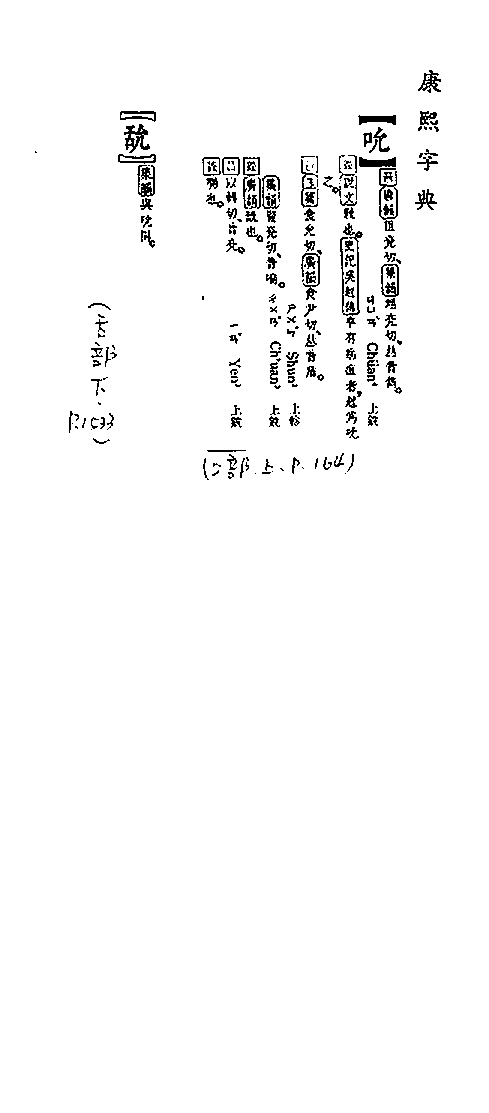 康熙字典
【吮】
廣韻徂兗切、集韻粗兗切、𠀤音雋。
ㄐㄩㄢˇ Chüan³ 上銑
說文欶也。史記吳起傳卒有病疽者、起爲吮之。
玉篇食允切、廣韻食尹切、𠀤音盾。
ㄕㄨㄣˇ Shun³ 上軫
集韻豎兗切、音膞。
ㄔㄨㄢˇ Ch'uan³ 上銑
廣韻也。
以轉切、音兗。
ㄧㄢˇ Yen³ 上銑
也。
(口部.上、P.164)
集韻與吮同。
(舌部下.P.1033)